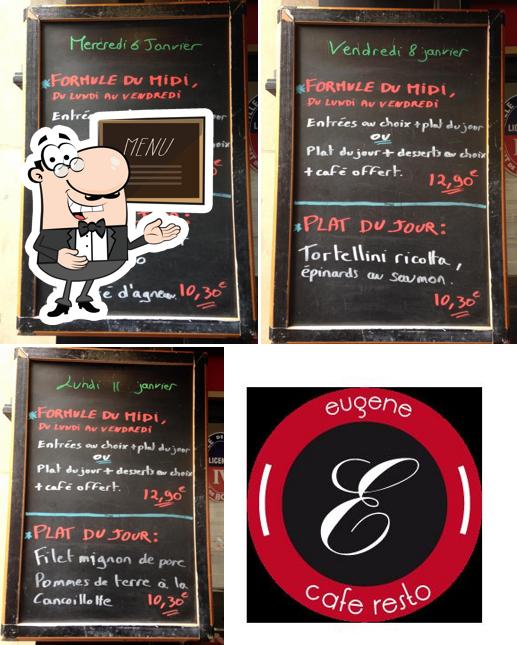 Mercredi 6 Janvier
*FORMULE DU MIDI,
DU LUNDI AU VENDREDI
Entrée
MENU
é d'agneau. 10,30€
Vendredi 8 janvier
*FORMULE DU MIDI,
DU LUNDI AU VENDREDI
Entrées au choix + plat du jour
ou
Plat du jour + desserts au choix
+ café offert. 12,90€
*PLAT DU JOUR:
Tortellini ricotta,
épinards au saumon.
10,30€
Lundi 11 janvier
*FORMULE DU MIDI,
DU LUNDI AU VENDREDI
Entrées au choix + plat du jour
ou
Plat du jour + desserts au choix
+ café offert. 12,90€
*PLAT DU JOUR:
Filet mignon de porc
Pommes de terre à la
Cancoillotte 10,30€
eugene
E
cafe resto